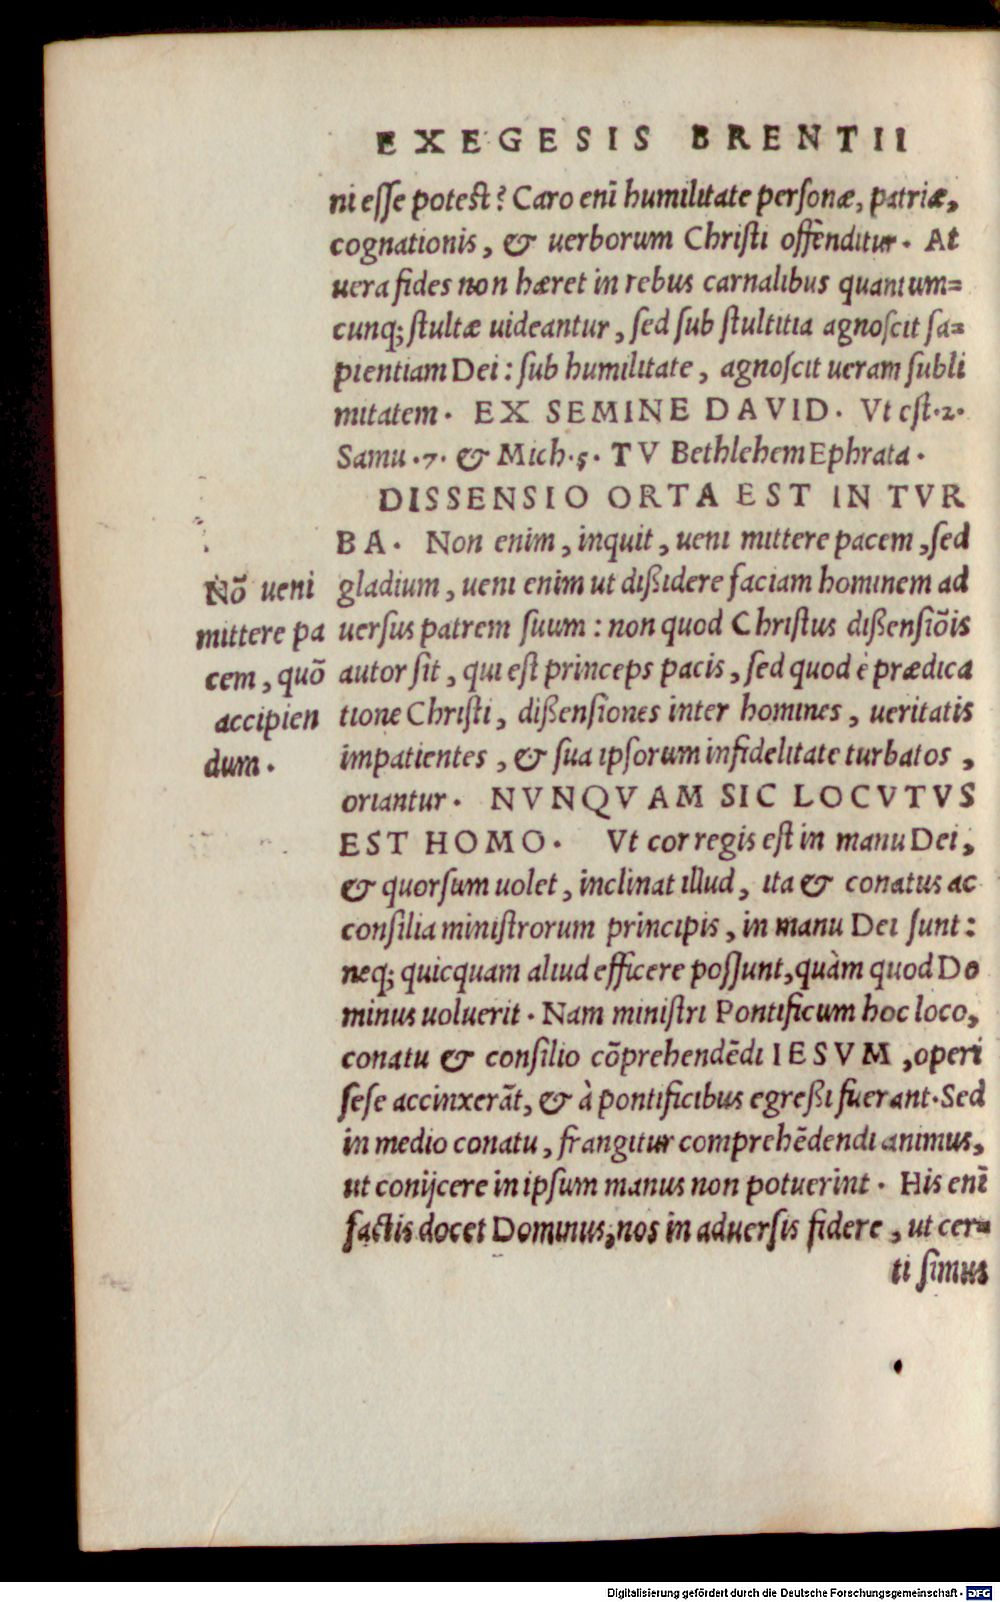 EXEGESIS BRENTII
ni esse potest? Caro enī humilitate personæ, patriæ,
cognationis, & uerborum Christi offenditur. At
uera fides non hæret in rebus carnalibus quantum=
cunq; stultæ uideantur, sed sub stultitia agnoscit sa=
pientiam Dei: sub humilitate, agnoscit ueram subli
mitatem. EX SEMINE DAVID. Vt est .2.
Samu .7. & Mich .5. TV Bethlehem Ephrata.
DISSENSIO ORTA EST IN TVR
BA. Non enim, inquit, ueni mittere pacem, sed
gladium, ueni enim ut dißidere faciam hominem ad
uersus patrem suum: non quod Christus dißensiõis
autor sit, qui est princeps pacis, sed quod è prædica
tione Christi, dißensiones inter homines, ueritatis
impatientes, & sua ipsorum infidelitate turbatos,
oriantur. NVNQVAM SIC LOCVTVS
EST HOMO. Vt cor regis est in manu Dei,
& quorsum uolet, inclinat illud, ita & conatus ac
consilia ministrorum principis, in manu Dei sunt:
neq; quicquam aliud efficere possunt, quàm quod Do
minus uoluerit. Nam ministri Pontificum hoc loco,
conatu & consilio cõprehendēdi IESVM, operi
sese accinxerãt, & à pontificibus egreßi fuerant. Sed
in medio conatu, frangitur comprehēdendi animus,
ut conijcere in ipsum manus non potuerint. His enī
factis docet Dominus, nos in aduersis fidere, ut cer=
ti simus
Nõ ueni
mittere pa
cem, quõ
accipien
dum.
Digitalisierung gefördert durch die Deutsche Forschungsgemeinschaft - DFG